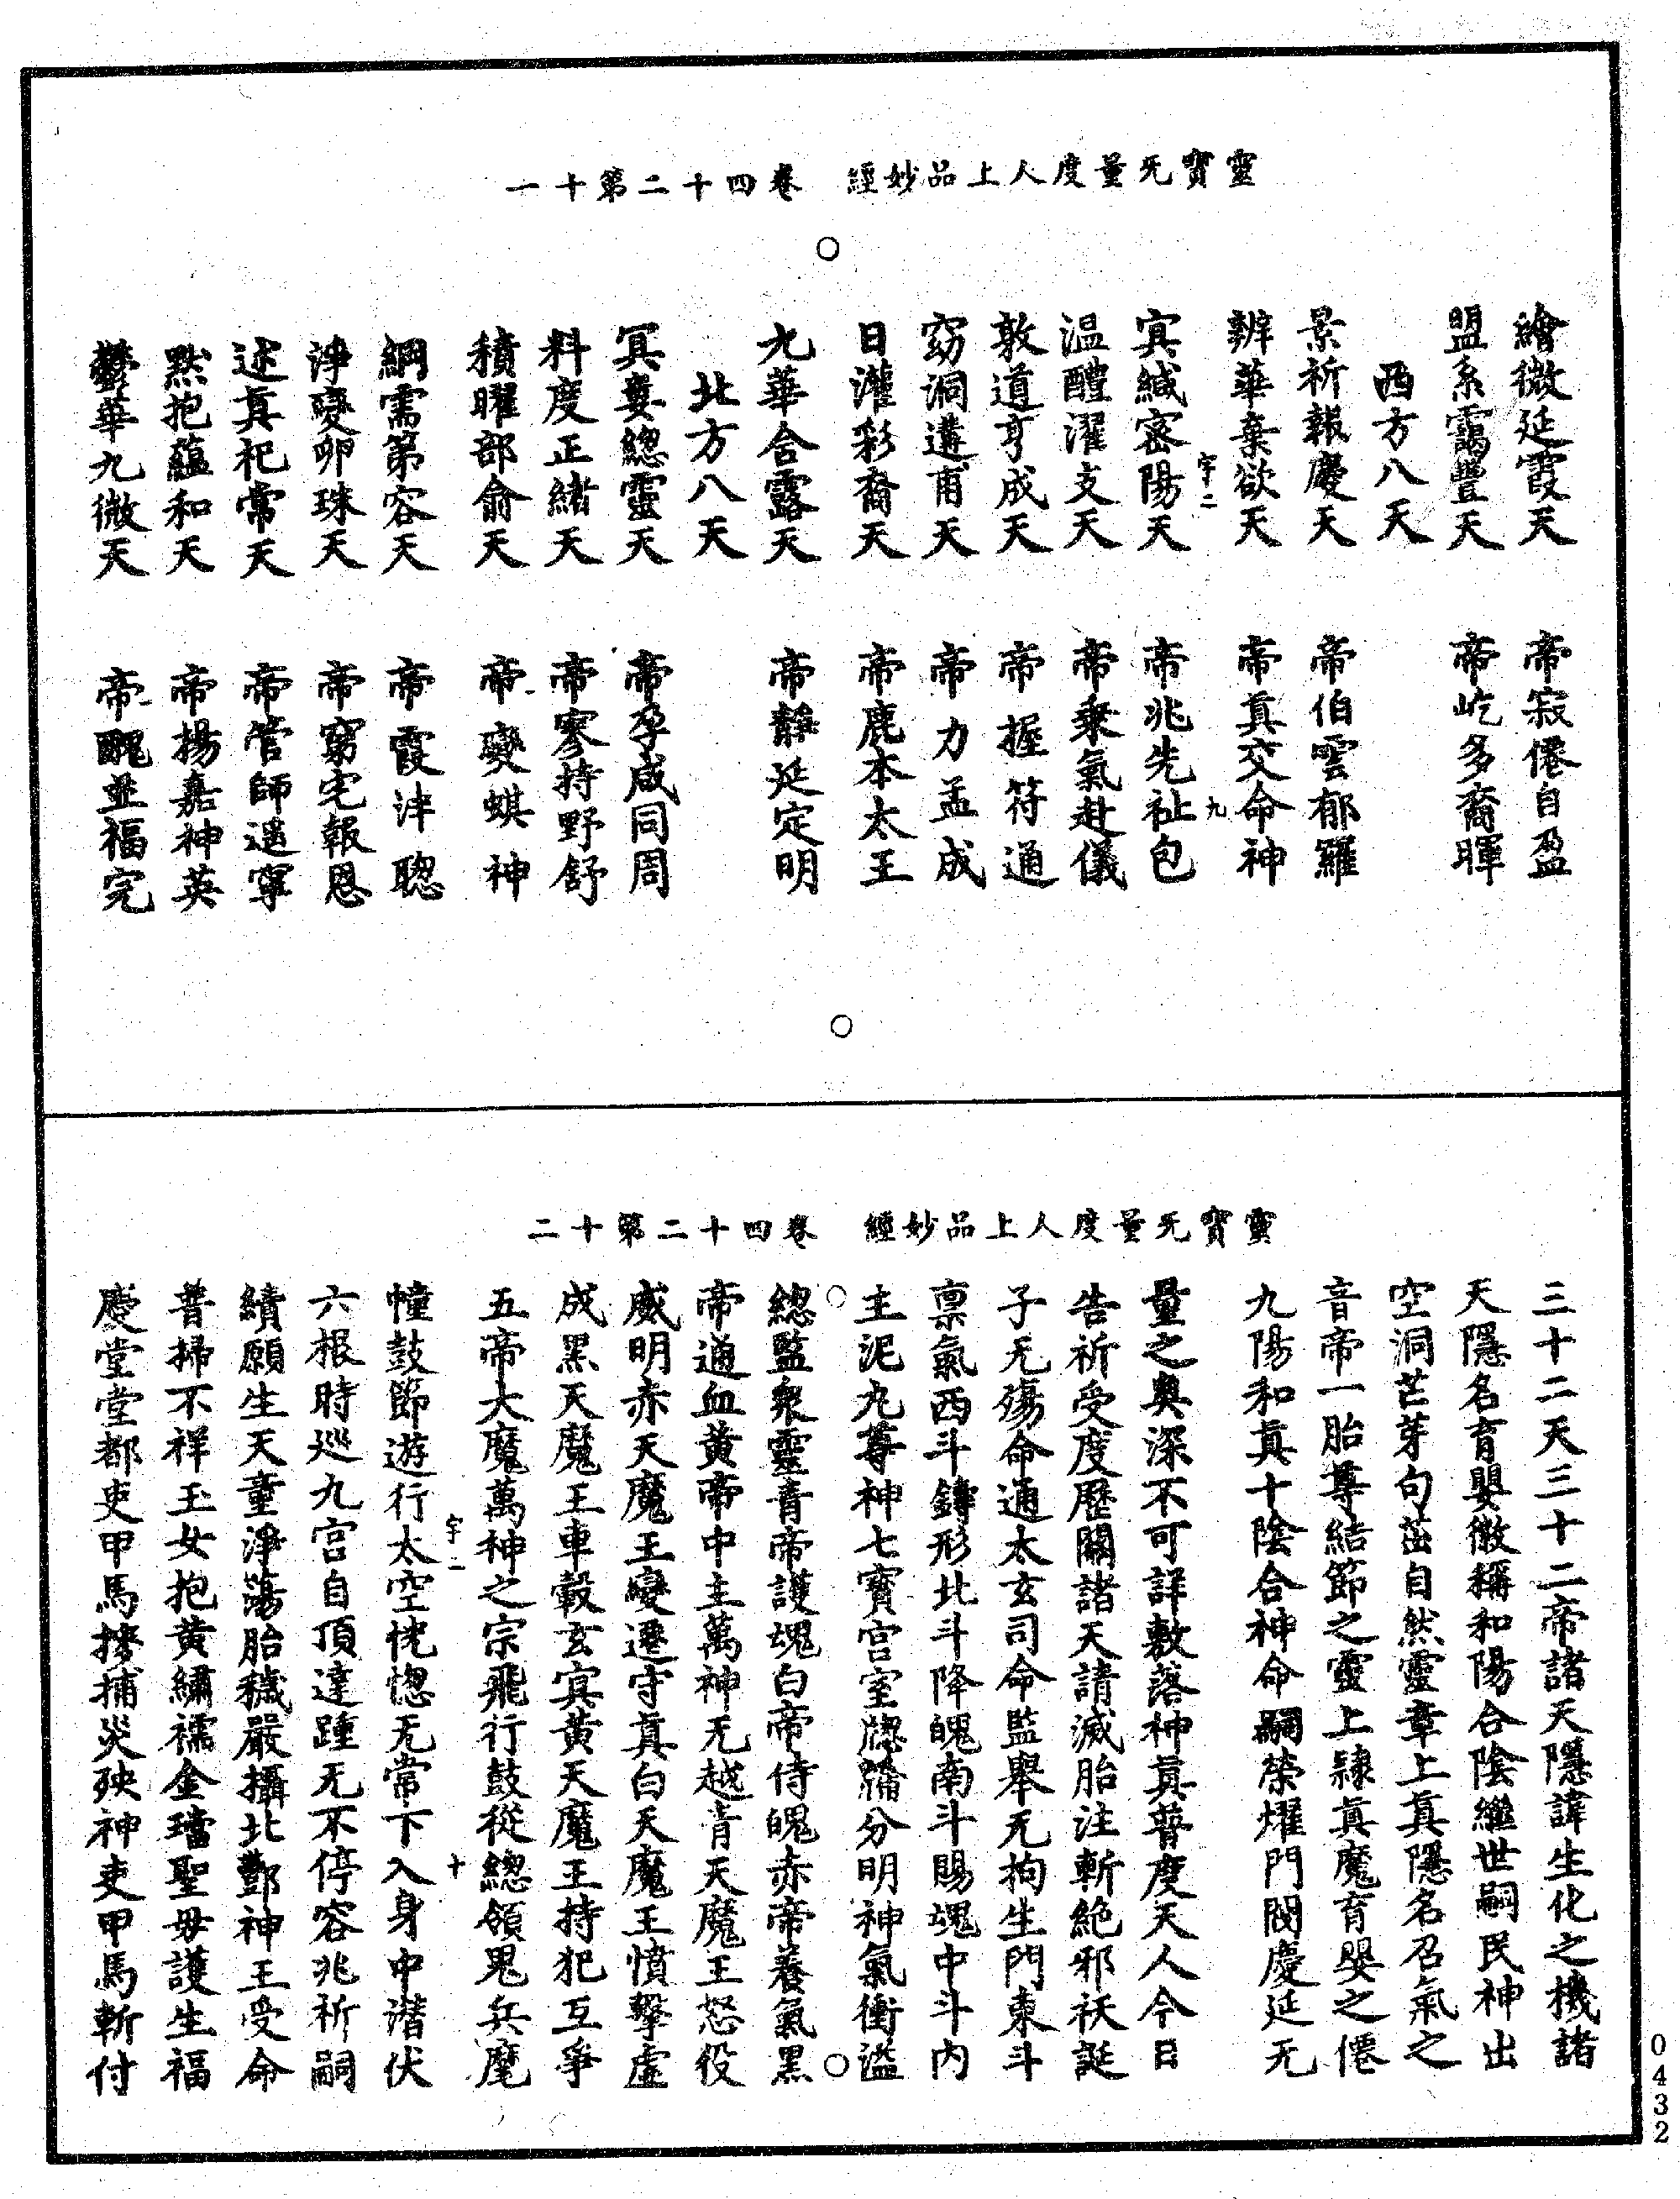 靈寶无量度人上品妙經　卷四十二第十一
繪微延霞天　帝寂僊自盈
盟系靄豐天　帝屹多裔暉
西方八天
景祈報慶天　帝伯雲郁羅
辨華棄欲天　帝真交命神
宇二　九
寘緘密陽天　帝兆先祉包
温醴濯支天　帝乘氣赴儀
敦道亨成天　帝握符通
窈洞遘甫天　帝力孟成
日灌彩裔天　帝鹿本太王
九華合露天　帝靜延定明
北方八天
冥妻總靈天　帝孕咸同周
料度正緒天　帝寥持野舒
積曜部俞天　帝爕蜞神
綱需第容天　帝霞沣聰
淨變卵珠天　帝窮宅報恩
述真杞常天　帝管師遥寧
默抱蘊和天　帝揚嘉神英
鬱華九微天　帝醜並福完
靈寶无量度人上品妙經　卷四十二第十二
三十二天三十二帝諸天隱諱生化之機諸
天隱名育嬰微稱和陽合陰繼世嗣民神出
空洞芒芽句茁自然靈章上真隱名召氣之
音帝一胎尊結節之靈上隸真魔育嬰之僊
九陽和真十陰合神命嗣榮燿門閥慶延无
量之奥深不可詳敷落神真普度天人今日
告祈受度歷關諸天請滅胎注斬絶邪祅誕
子无殤命通太玄司命監舉无拘生門東斗
禀氣西斗鑄形北斗降魄南斗賜魂中斗内
主泥丸尊神七寶宮室牕牖分明神氣衝溢
總監衆靈青帝護魂白帝侍魄赤帝養氣黑
帝通血黄帝中主萬神无越青天魔王怒役
威明赤天魔王變遷守真白天魔王憤擊虚
成黑天魔王車轂玄寘黄天魔王持犯互爭
五帝大魔萬神之宗飛行鼓從總領鬼兵麾
宇二　十
幢鼓節遊行太空恍惚无常下入身中潛伏
六根時巡九宮自頂達踵无不停容兆祈嗣
續願生天童淨蕩胎穢嚴攝北酆神王受命
普掃不祥玉女抱黄繡襦金璫聖母護生福
慶堂堂都吏甲馬搒捕災殃神吏甲馬斬付
0432